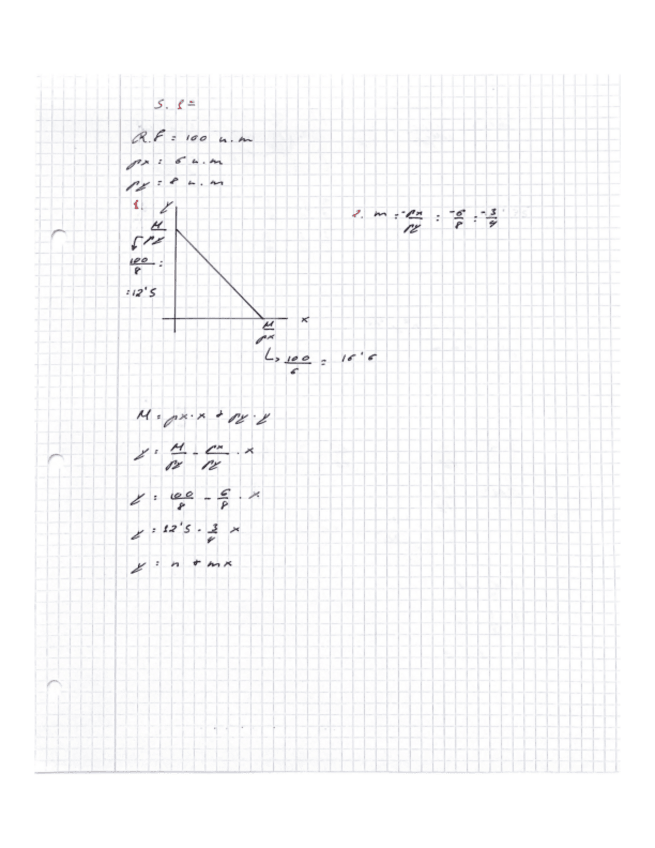 5. 1 =
R.F = 100 u.m
px = 6 u.m
py = 8 u.m
1. y
M/py
100/8 =
= 12'5
x
M/px
↳ 100/6 = 16'6
2. m = -px/py = -6/8 = -3/4
M = px·x + py·y
y = M/py - px/py · x
y = 100/8 - 6/8 · x
y = 12'5 - 3/4 x
y = n + mx